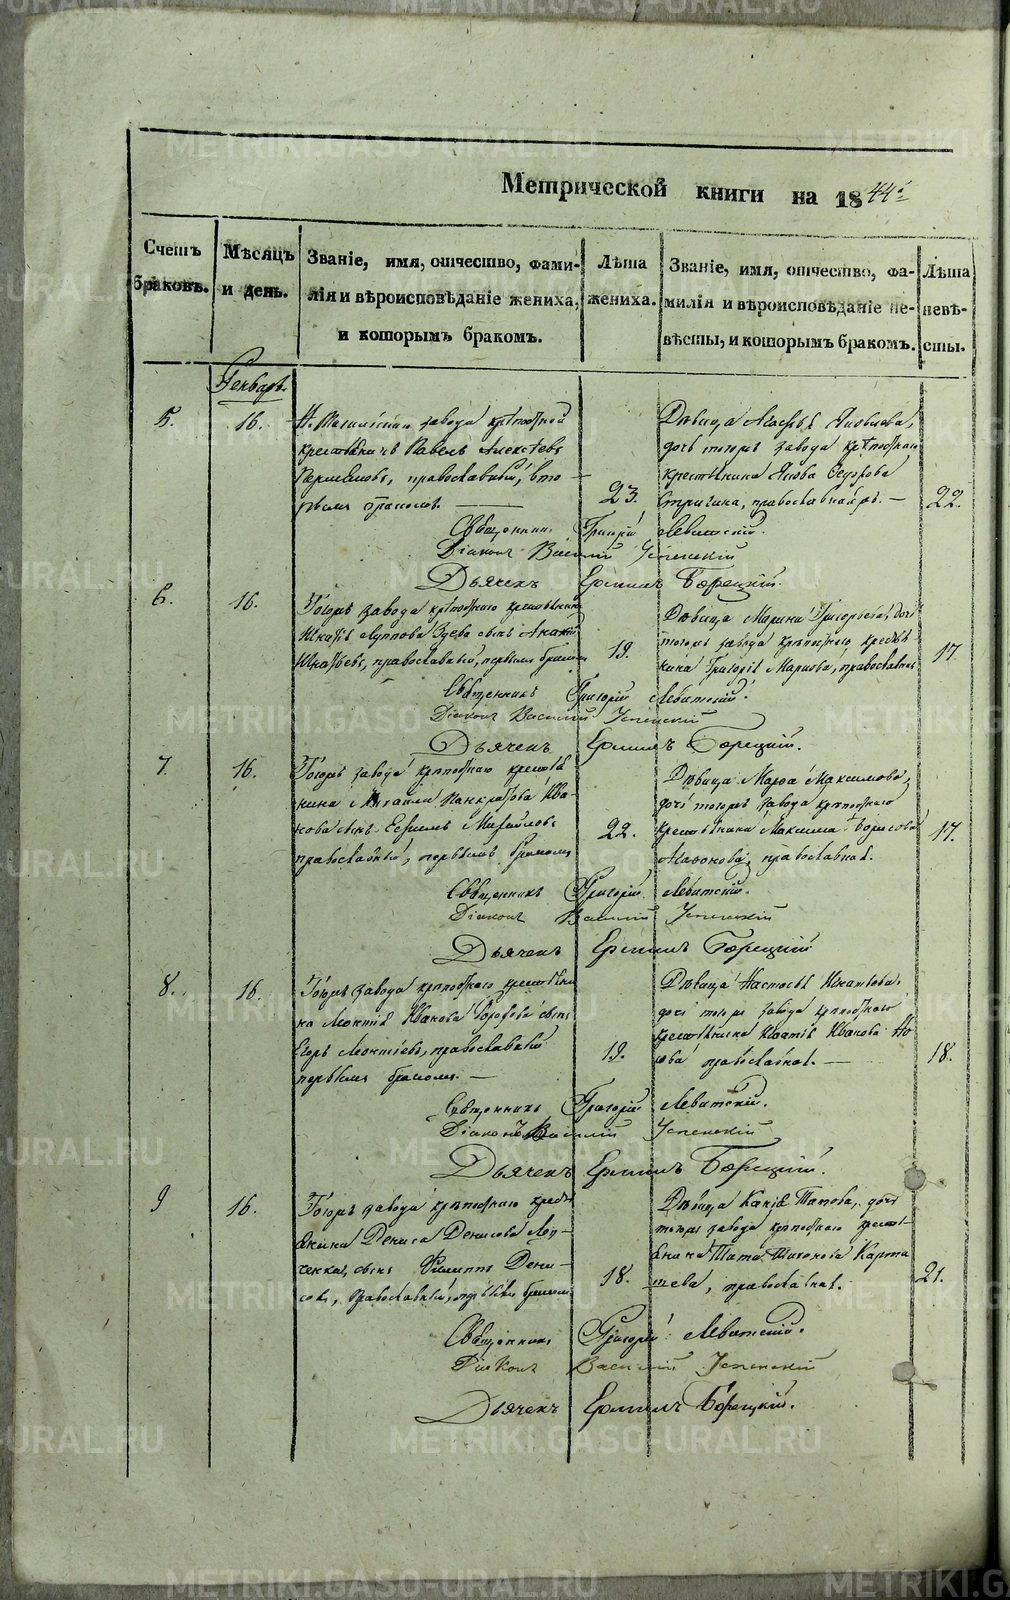 Метрической книги на 1844й
Счетъ браковъ.
Мѣсяцъ и день.
Званіе, имя, отчество, фами-
лія и вѣроисповѣданіе жениха,
и которымъ бракомъ.
Лѣта
жениха.
Званіе, имя, отчество, фа-
милія и вѣроисповѣданіе не-
вѣсты, и которымъ бракомъ.
Лѣта
невѣ-
сты.
Генварь.
5.
16.
завода крѣпостной
крестьянинъ Павелъ Алексѣевъ
православный, вто-
рымъ бракомъ.
23.
Дѣвица Яковлева,
дочь тогожъ завода крѣпостнаго
крестьянина Якова Федорова
Стригина, православная. —
22.
Священникъ Григорій Левитскій.
Діаконъ Василій Успенскій
Дьячекъ Ермилъ Борецкій.
6.
16.
Тогожъ завода крѣпостнаго крестьянина
Игнатія Луппова Зуева сынъ
Игнатьевъ, православный, первымъ бракомъ
19.
Дѣвица Марина Григорьева, дочь
тогожъ завода крѣпостнаго крестья-
нина Григорія православная
17.
Священникъ Григорій Левитскій.
Діаконъ Василій Успенскій
Дьячекъ Ермилъ Борецкій.
7.
16.
Тогожъ завода крѣпостнаго крестья-
нина Михайла Панкратова Ива-
нова сынъ Ефимъ Михайловъ
православный, первымъ бракомъ
22.
Дѣвица Марфа Максимова,
дочь тогожъ завода крѣпостнаго
крестьянина Максима Борисова
православная.
17.
Священникъ Григорій Левитскій.
Діаконъ Василій Успенскій
Дьячекъ Ермилъ Борецкій
8.
16.
Тогожъ завода крѣпостнаго крестьяни-
на Леонтія Иванова сынъ
Егоръ Леонтіевъ, православный
первымъ бракомъ. —
19.
Дѣвица Настасья Игнатьева,
дочь тогожъ завода крѣпостнаго
крестьянина Игнатія Иванова
православная. —
18.
Священникъ Григорій Левитскій.
Діаконъ Василій Успенскій
Дьячекъ Ермилъ Борецкій.
9
16.
Тогожъ завода крѣпостнаго кресть-
янина Дениса Денисова
сынъ Филиппъ Дени-
совъ, православный, первымъ бракомъ
18.
Дѣвица Титова, дочь
тогожъ завода крѣпостнаго кресть-
янина Тита Тихонова Карта-
шева, православная.
21.
Священникъ Григорій Левитскій.
Діаконъ Василій Успенскій
Дьячекъ Ермилъ Борецкій.
METRIKI.GASO-URAL.RU